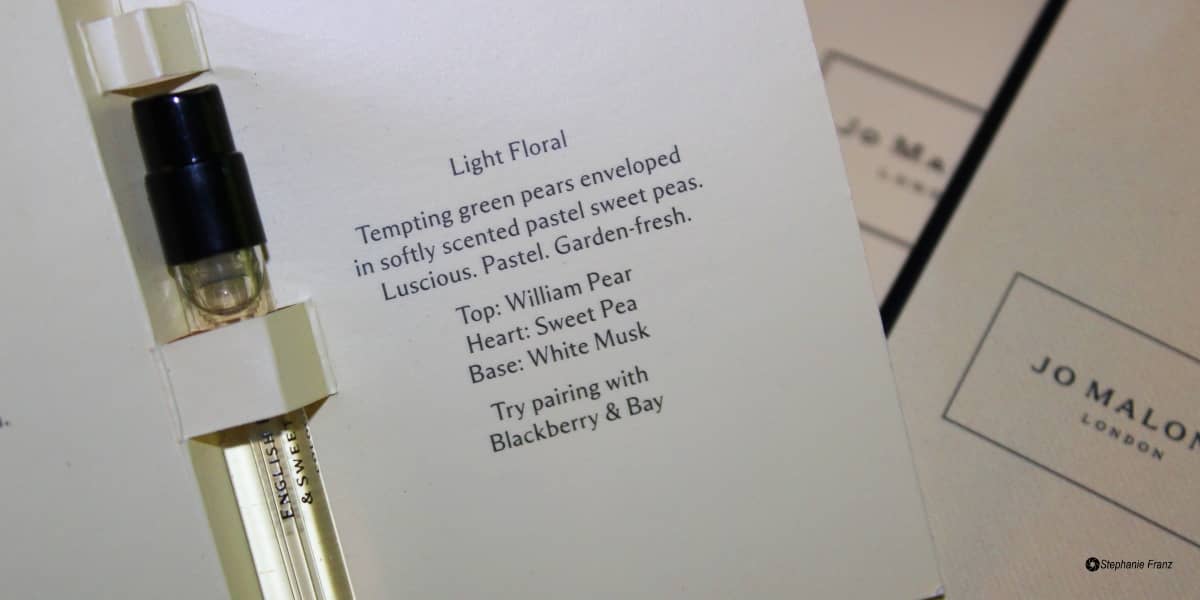 Light Floral
Tempting green pears enveloped
in softly scented pastel sweet peas.
Luscious. Pastel. Garden-fresh.
Top: William Pear
Heart: Sweet Pea
Base: White Musk
Try pairing with
Blackberry & Bay
ENGLISH
& SWEET
JO MA
LOND
JO MALON
LONDON
Stephanie Franz